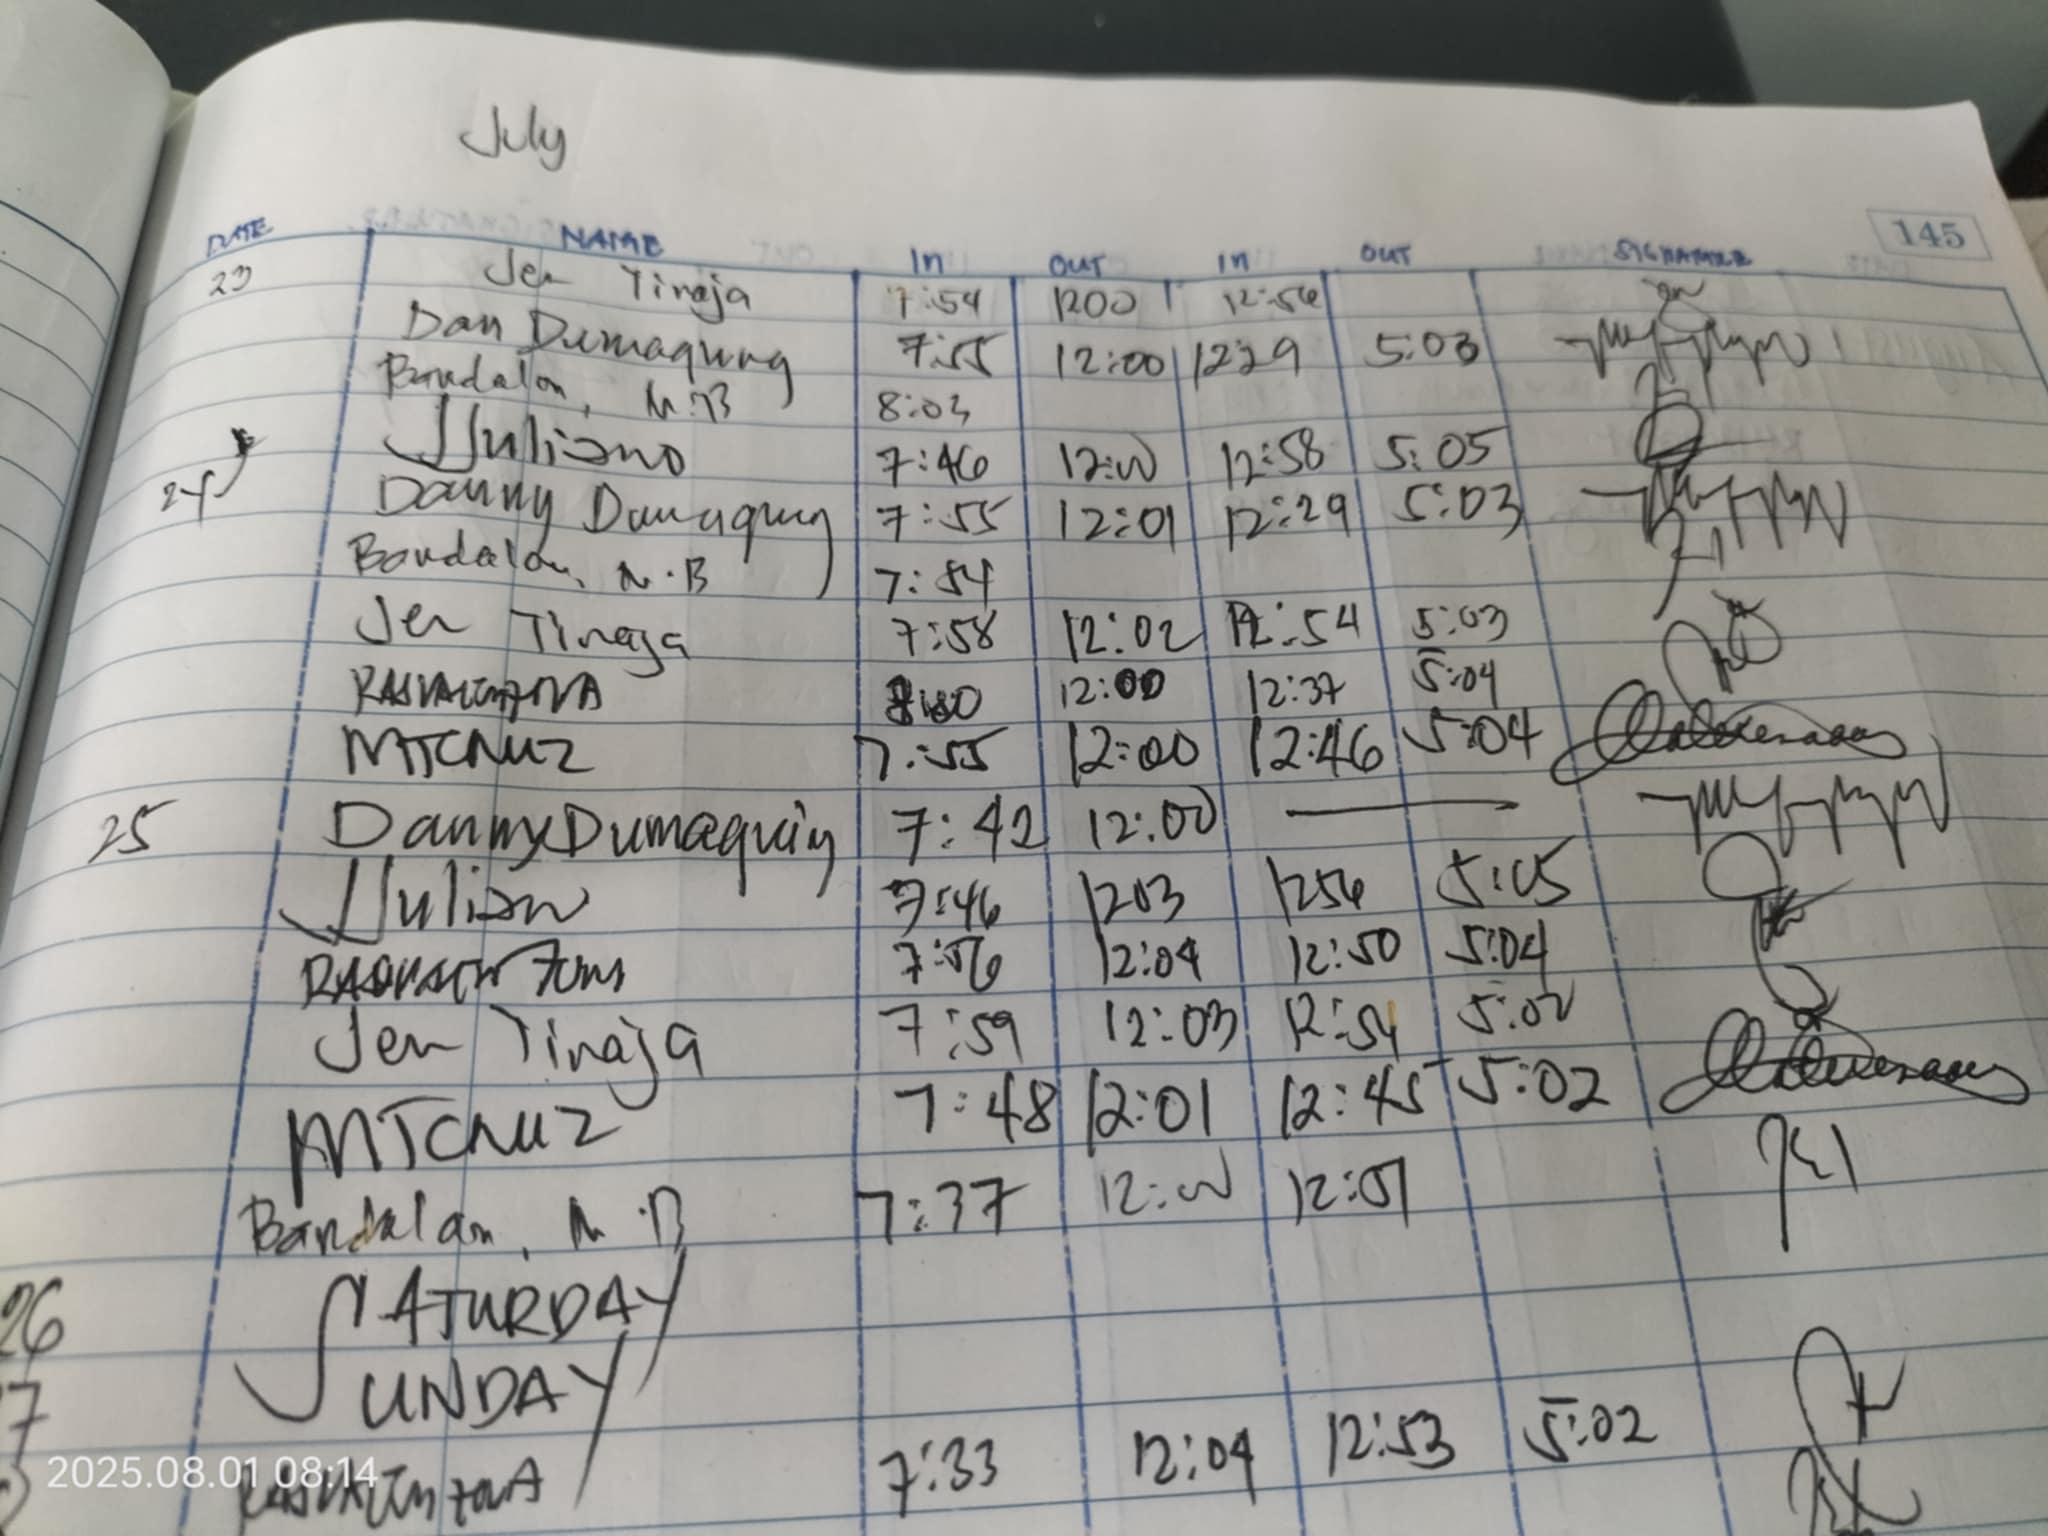 July
145
DATE NAME IN OUT IN OUT SIGNATURE
23 Jen Tinaja 7:54 1200 12:56
Dan Dumaquing 7:55 12:00 1229 5:03
Bandalan, N.B 8:03
24 JJuliano 7:46 12:00 12:58 5:05
Danny Dumaquing 7:55 12:01 12:29 5:03
Bandalan, N.B 7:54
Jen Tinaja 7:58 12:02 12:54 5:03
12:00 12:37 5:04
MTCRUZ 7:55 12:00 12:46 5:04
25 Danny Dumaquing 7:42 12:00
JJuliano 7:46 1203 1256 5:05
7:56 12:04 12:50 5:04
Jen Tinaja 7:59 12:03 12:54 5:02
MTCRUZ 7:48 12:01 12:45 5:02
Bandalan, N.B 7:37 12:00 12:01
26 SATURDAY
SUNDAY
7:33 12:04 12:53 5:02
2025.08.01 08:14